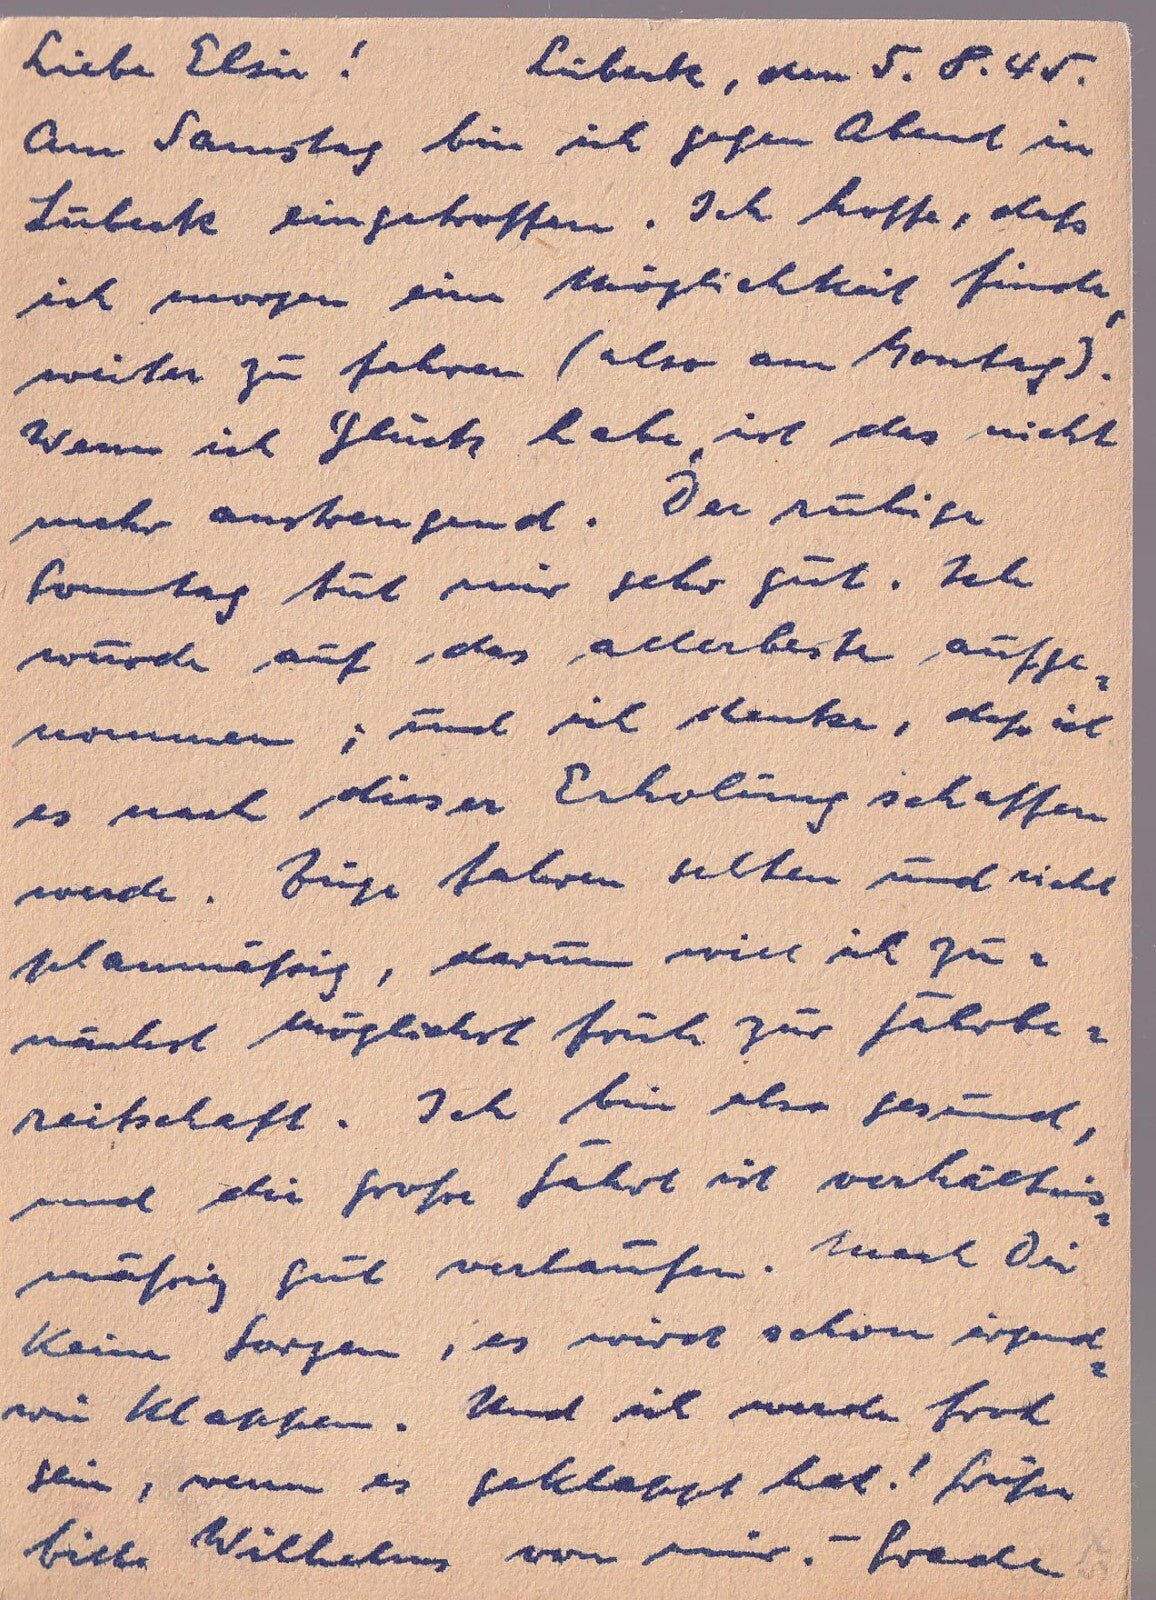 Liebe Elsie! Lübeck, den 5.8.45.
Am Samstag bin ich gegen Abend in
Lübeck eingetroffen. Ich hoffe, daß
ich morgen eine Möglichkeit finde,
weiter zu fahren (also am Montag).
Wenn ich Glück habe, ist das nicht
mehr anstrengend. Der ruhige
Sonntag tut mir sehr gut. Ich
wurde auf das allerbeste aufge-
nommen; und ich denke, daß ich
es nach dieser Erholung schaffen
werde. Züge fahren selten und nicht
planmäßig, darum will ich zu-
nächst möglichst früh zur Fahrbe-
reitschaft. Ich bin also gesund,
und die große Fahrt ist verhältnis-
mäßig gut verlaufen. Mach Dir
keine Sorgen, es wird schon irgend-
wie klappen. Und ich werde froh
sein, wenn es geklappt hat! Grüße
bitte Wilhelms von mir. – Gerade